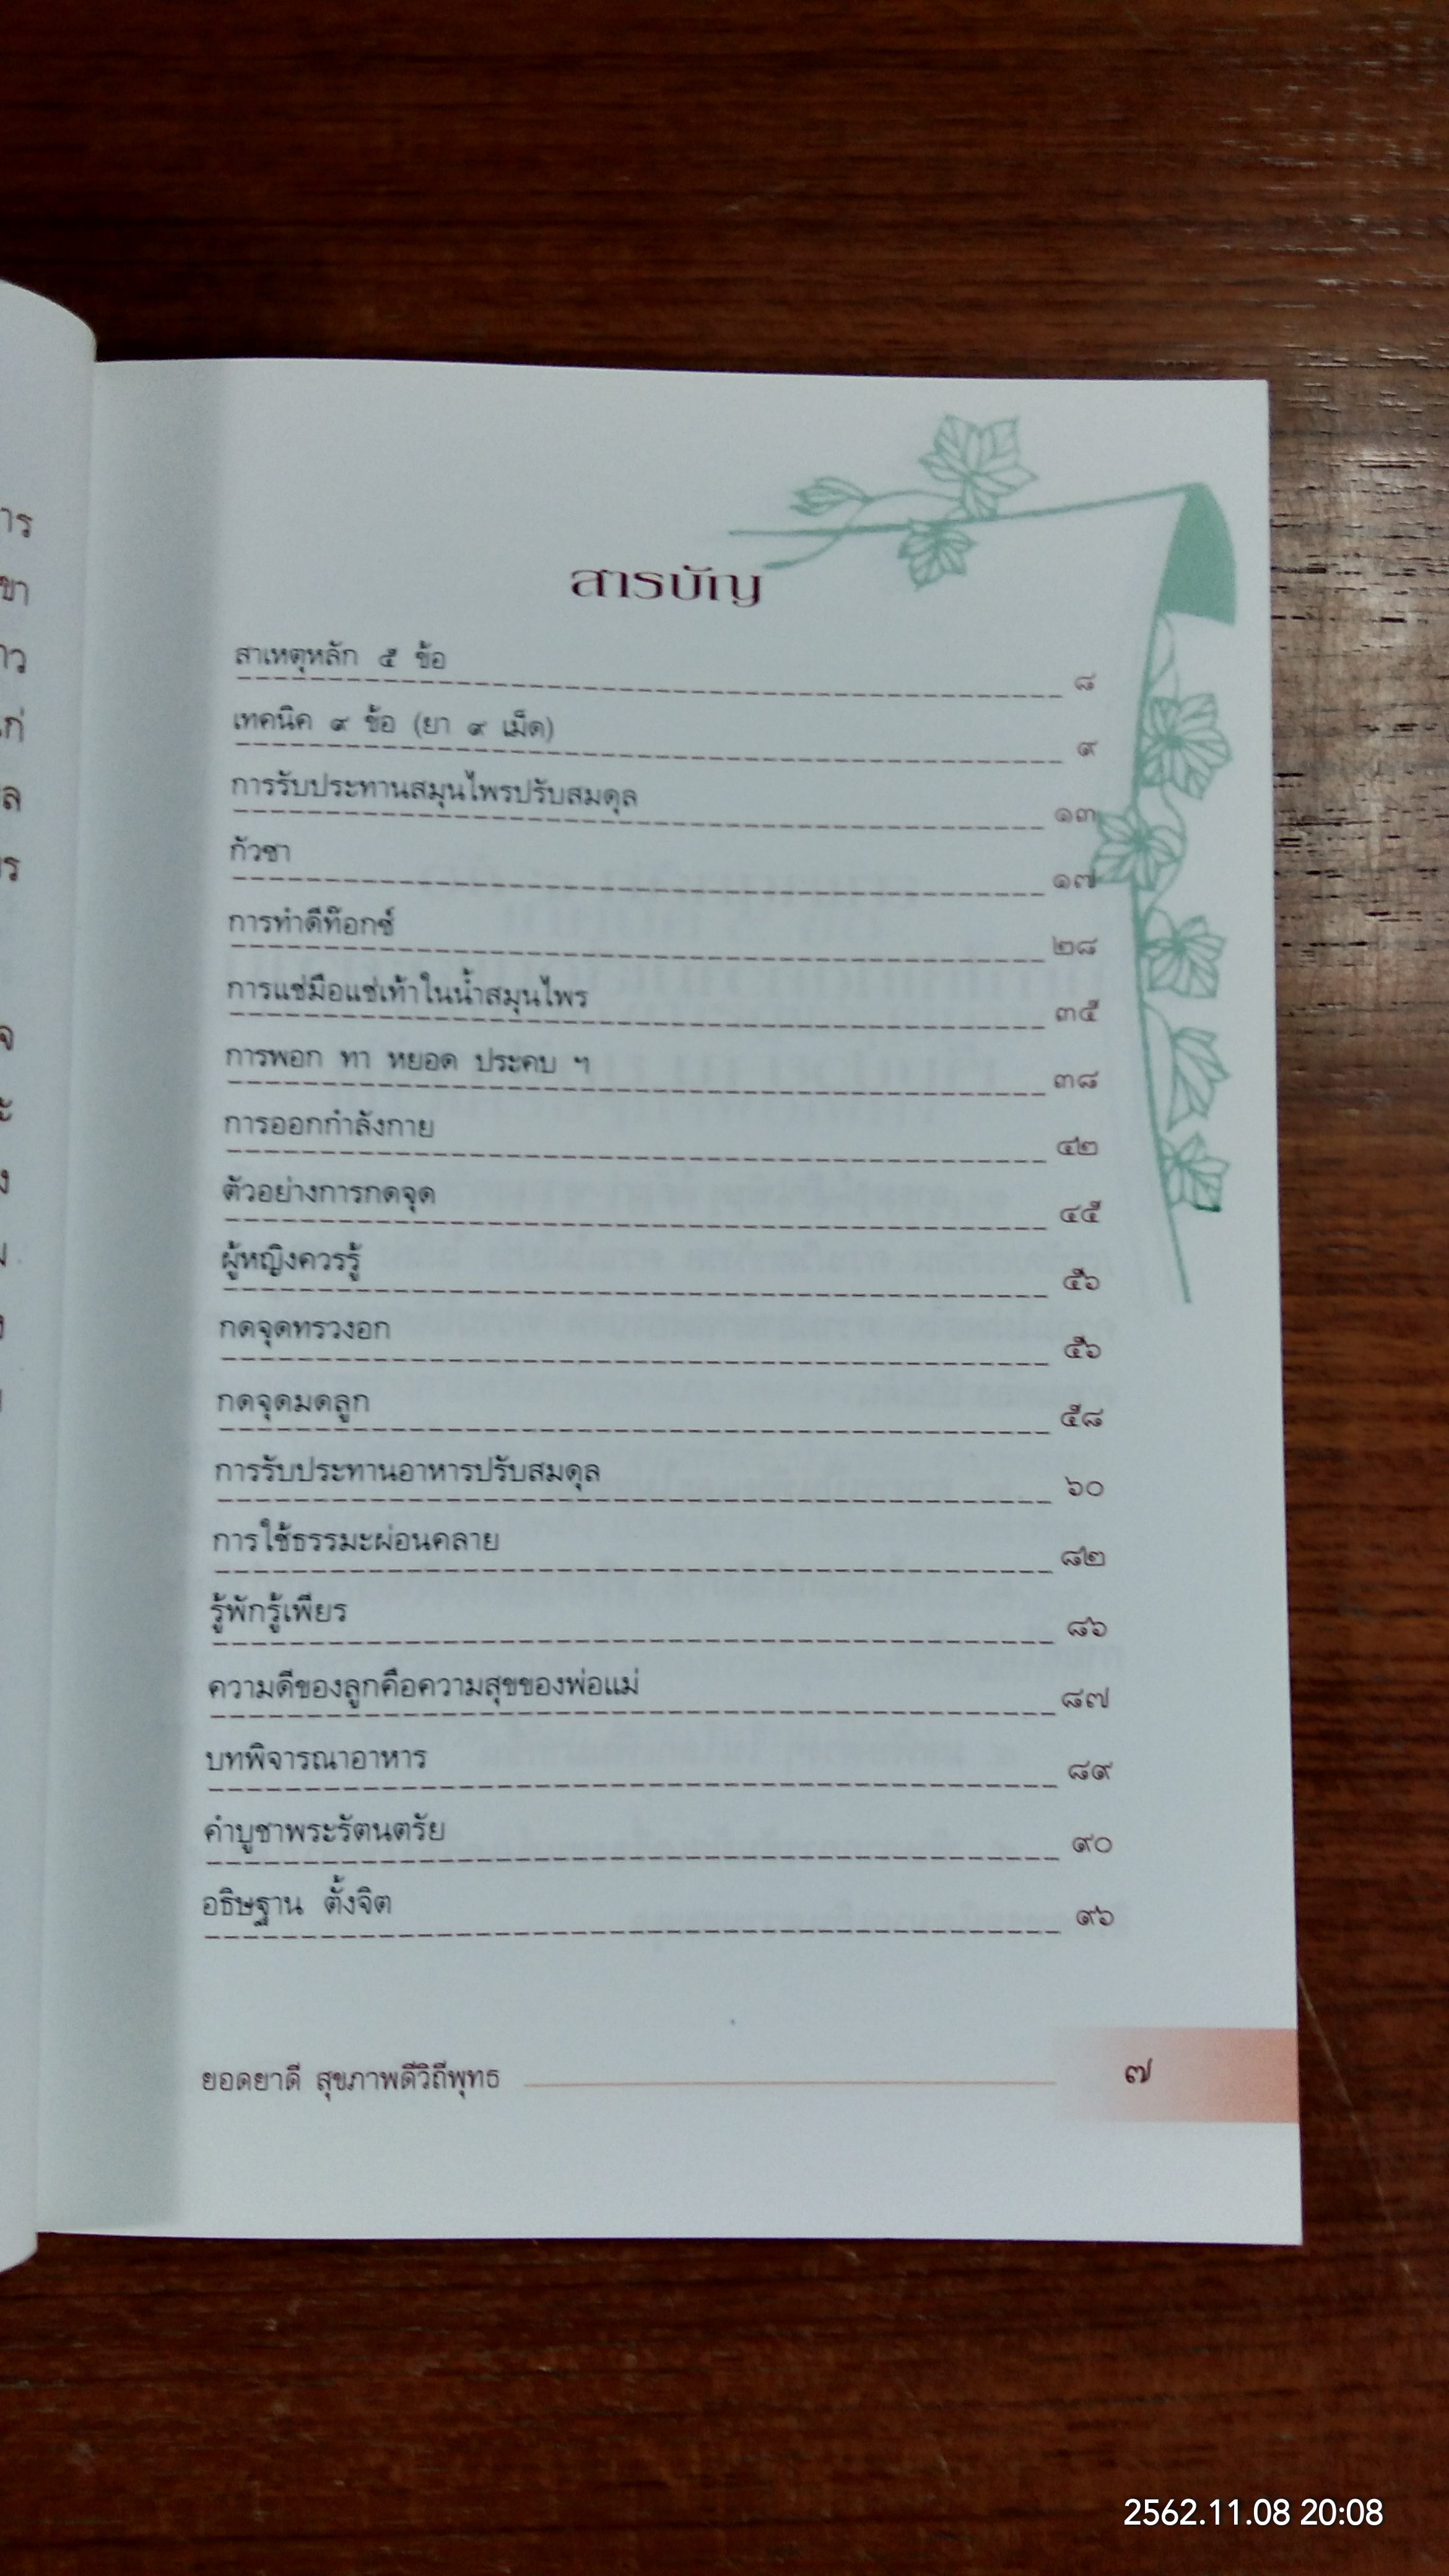 สารบัญ
สาเหตุหลัก ๕ ข้อ ๘
เทคนิค ๙ ข้อ (ยา ๙ เม็ด) ๙
การรับประทานสมุนไพรปรับสมดุล ๑๓
กัวซา ๑๗
การทำดีท๊อกซ์ ๒๘
การแช่มือแช่เท้าในน้ำสมุนไพร ๓๕
การพอก ทา หยอด ประคบ ฯ ๓๘
การออกกำลังกาย ๔๒
ตัวอย่างการกดจุด ๔๕
ผู้หญิงควรรู้ ๕๖
กดจุดทรวงอก ๕๖
กดจุดมดลูก ๕๘
การรับประทานอาหารปรับสมดุล ๖๐
การใช้ธรรมะผ่อนคลาย ๘๒
รู้พักรู้เพียร ๘๖
ความดีของลูกคือความสุขของพ่อแม่ ๘๗
บทพิจารณาอาหาร ๘๙
คำบูชาพระรัตนตรัย ๙๐
อธิษฐาน ตั้งจิต ๙๖
ยอดยาดี สุขภาพดีวิถีพุทธ ๗
2562.11.08 20:08